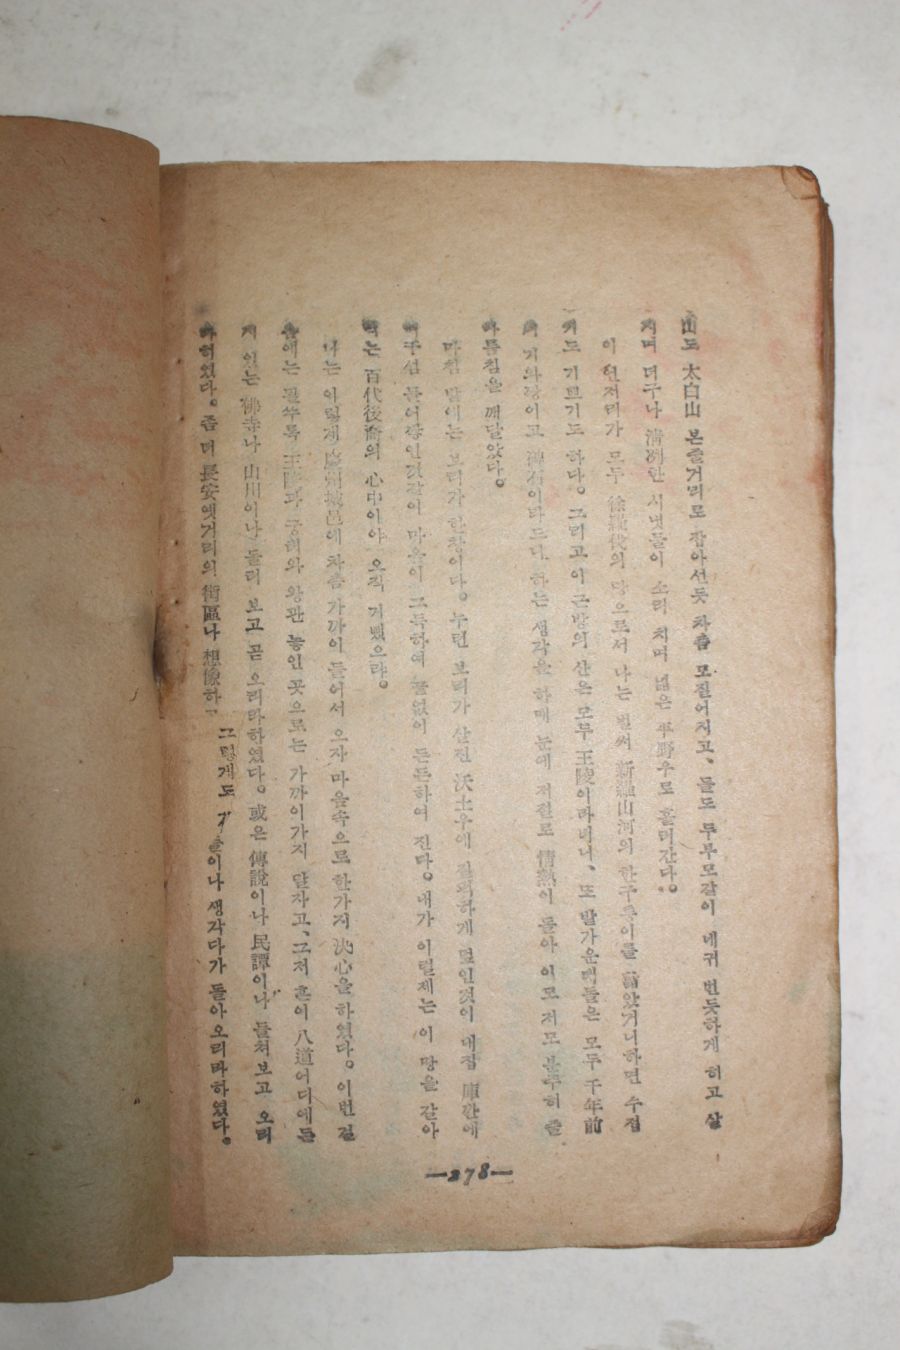 山도 太白山 본줄거리로 잡아선듯 차츰 모질어지고、들도 두부모같이 네귀 번듯하게 히고 살
지며 더구나 淸冽한 시냇물이 소리 치며 넓은 平野우로 흘러간다。
이 언저리가 모두 徐羅伐의 땅으로서 나는 벌써 新羅山河의 한구통이를 밟았거니하면 수접
기도 기쁘기도 하다。그리고 이 근방의 산은 모두 王陵이라네니、또 발가운 돌은 모두 千年前
기와장이고 이라드라 하는 생각을 하매 눈에 저절로 情熱이 돌아 이모 저모 분주히 줄
다름침을 깨달았다。
마침 밭에는 보리가 한창이다。누런 보리가 살진 沃土우에 질펀하게 덮인것이 내집 庫간에
들어앙인것같이 마음이 그득하여 끝없이 든든하여 진다。내가 이럴제는 이 땅을 갈아
먹는 百代後裔의 心中이야 오직 기뻤으랴。
나는 이렇게 慶州城邑에 차츰 가까이 들어서 오자 마음속으로 한가지 決心을 하였다。이번 걸
음에는 될쑤록 王陵과 왕관 놓인 곳으로는 가까이가지 말자고、그저 흔이 八道어디에든
지 있는 佛寺나 山川이나 둘러 보고 곧 오리라하였다。或은 傳說이나 民譚이나 들춰보고 오리
라하였다。좀 더 長安옛거리의 街區나 想像하고 그렇게도 이나 생각다가 돌아오리라하였다。
—278—